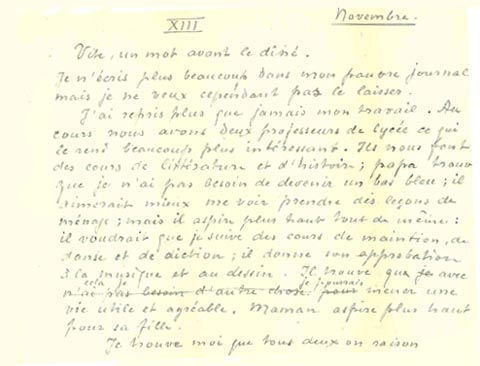 XIII
Novembre.
Vite, un mot avant le dîné.
Je n'écris plus beaucoup dans mon pauvre journal
mais je ne veux cependant pas le laisser.
J'ai repris plus que jamais mon travail. Au
cours nous avons deux professeurs de lycée ce qui
le rend beaucoup plus intéressant. Ils nous font
des cours de littérature et d'histoire; papa trouve
que je n'ai pas besoin de devenir un bas bleu; il
aimerait mieux me voir prendre des leçons de
ménage; mais il aspire plus haut tout de même:
il voudrait que je suive des cours de maintion, de
danse et de diction; il donne son approbation
à la musique et au dessin. Il trouve que avec
cela je je pourrais
n'ai pas besoin d'autre chose pour mener une
vie utile et agréable. Maman aspire plus haut
pour sa fille.
Je trouve moi que tous deux on raison